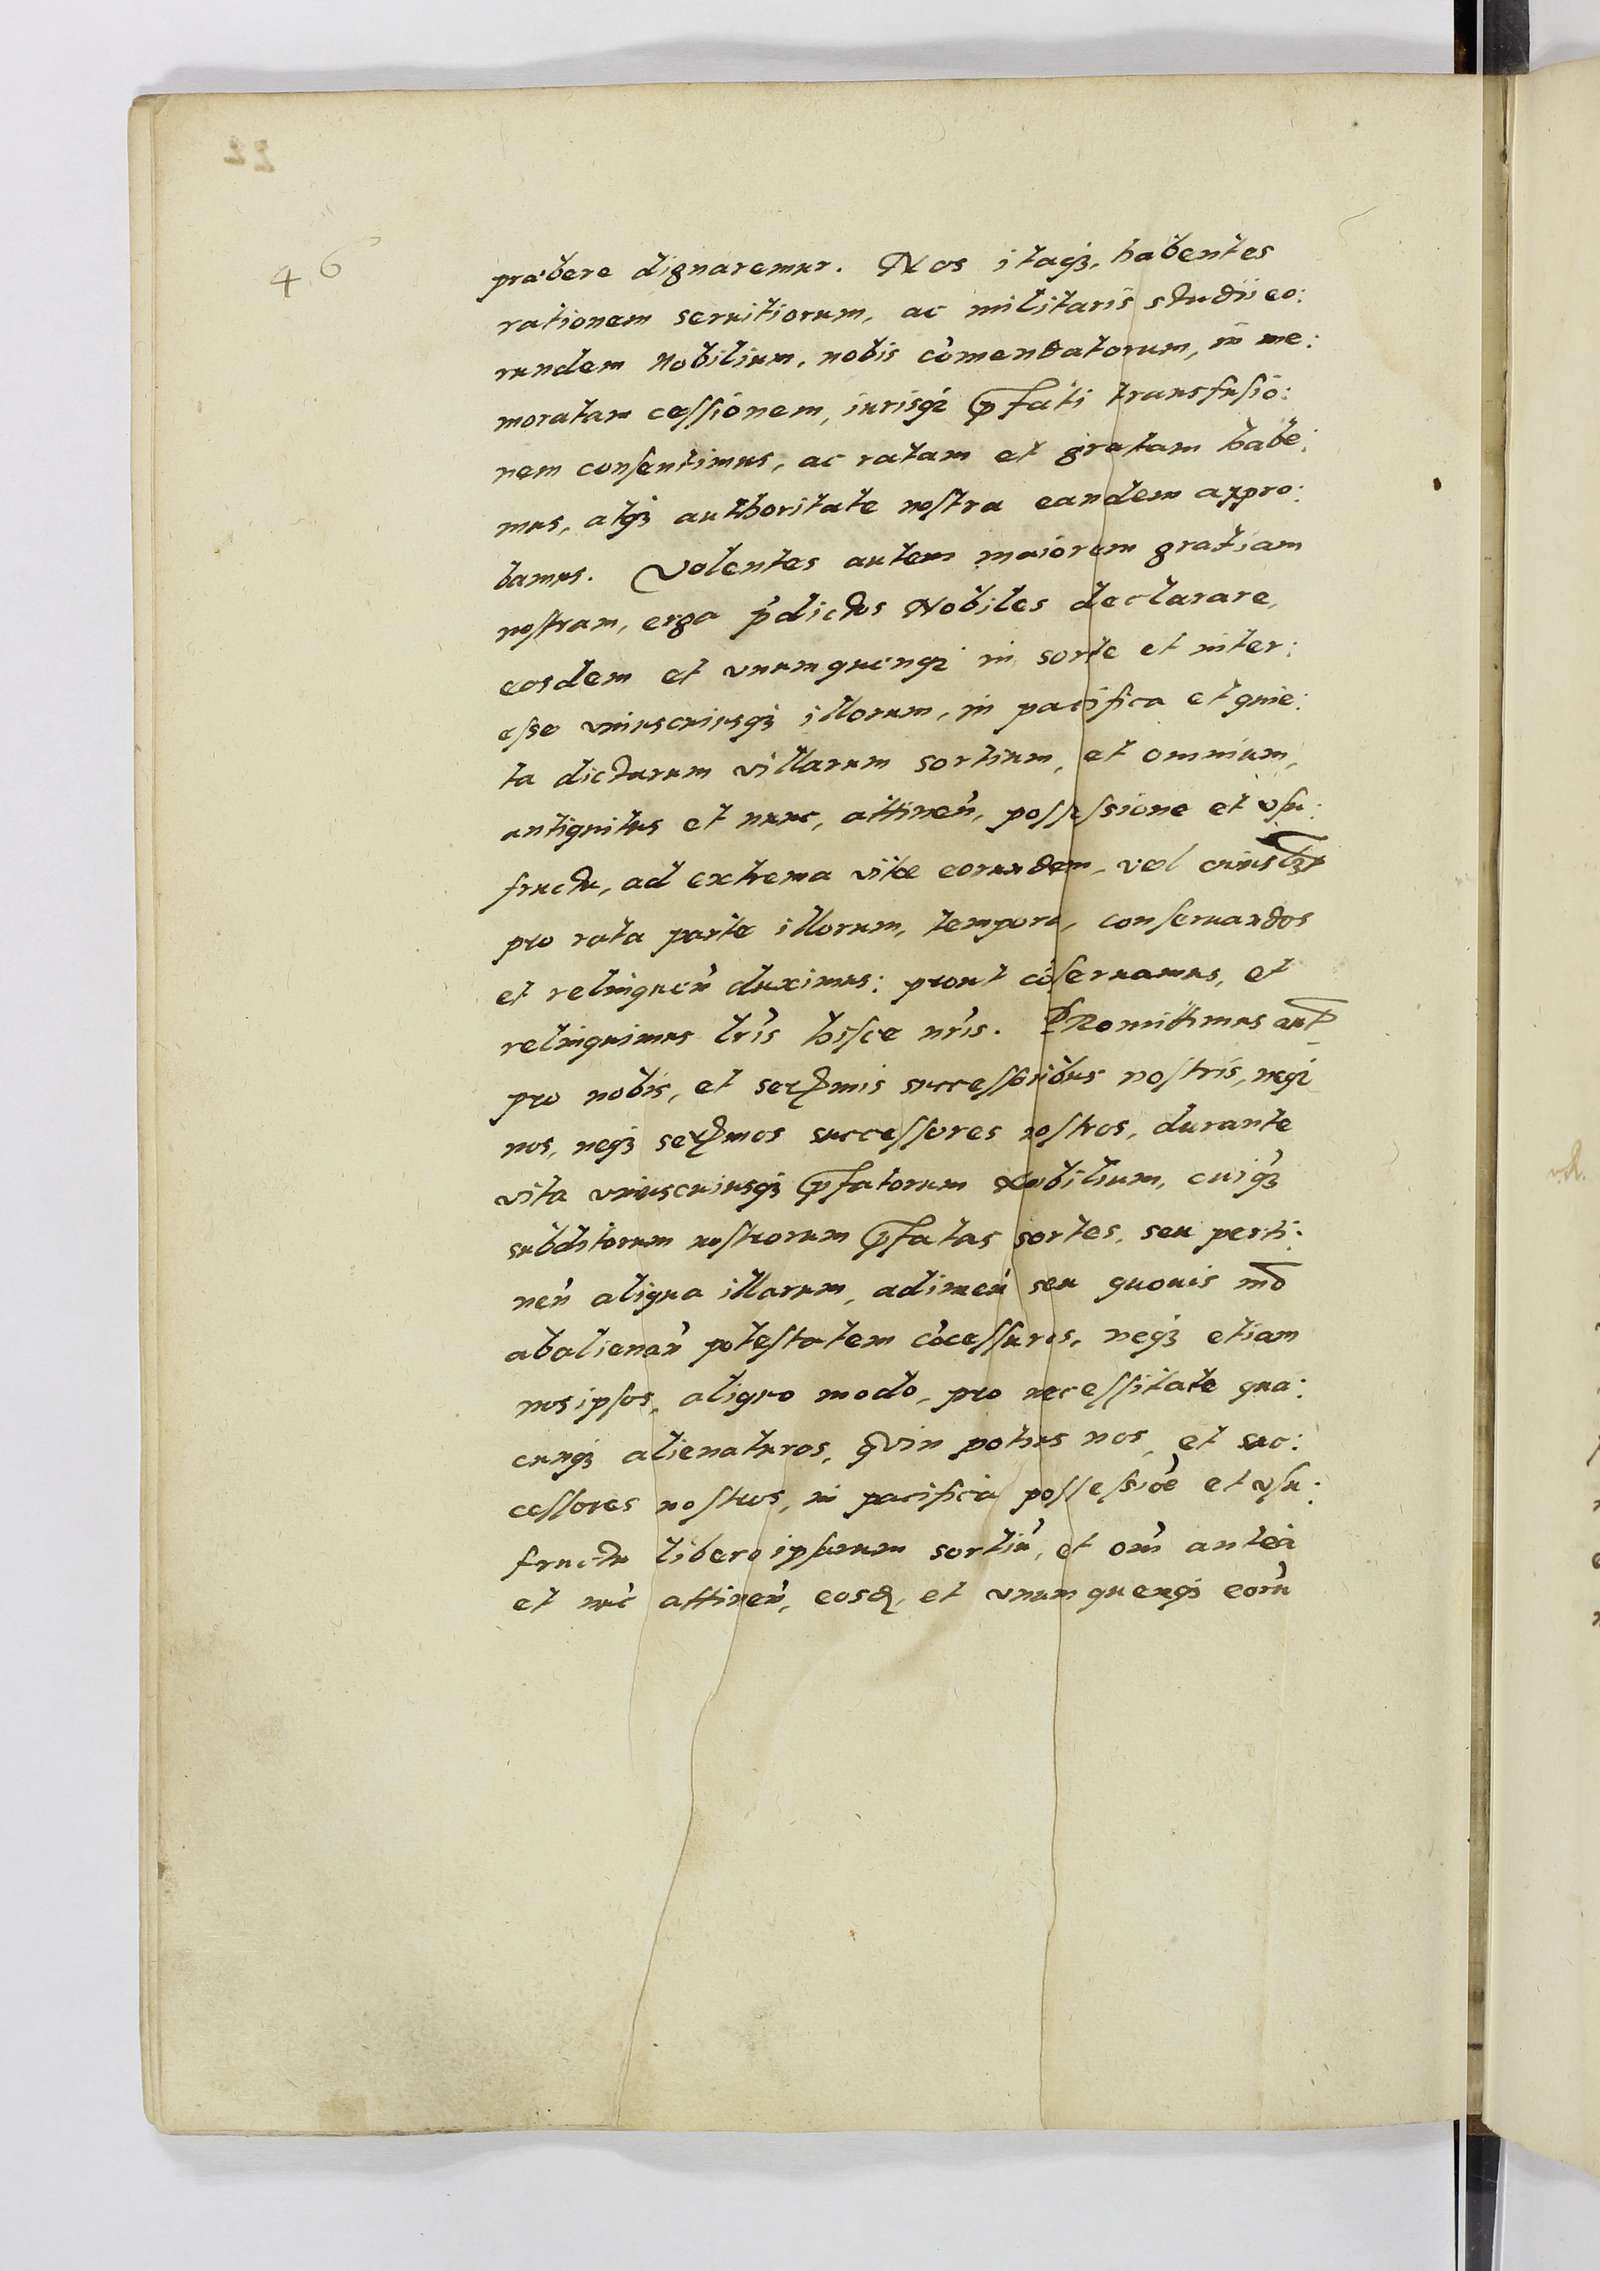 46
præbere dignaremur. Nos itaqꝫ, habentes
rationem seruitiorum, ac militaris studii eo:
rundem Nobilium, nobis cōmendatorum, in me:
moratam cessionem, iurisqꝫ p̄fati transfusio:
nem consentimus, ac ratam et gratam habe:
mus, atqꝫ authoritate nostra eandem appro:
bamus. Volentes autem maiorem gratiam
nostram, erga p̄dictos Nobiles declarare,
eosdem et vnumquenqꝫ in sorte et inter:
esse vniuscuiusqꝫ illorum, in pacifica et quie:
ta dictarum villarum sortium, et omnium,
antiquitus et nunc, attineñ, possessione et vsu:
fructu, ad extrema vitæ eorundem, vel cuiuslꝫ
pro rata parte illorum, tempora, conseruandos
et relinqueñ duximus: prout cōseruamus, et
relinquimus lr̄is hisce nr̄is. PRomittimus aut̄
pro nobis, et serᷤmis successoribus nostris, neqꝫ
nos, neqꝫ serᷤmos successores nostros, durante
vita vniuscuiusqꝫ p̄fatorum Nobilium, cuiqꝫ
subditorum nostrorum p̄fatas sortes, seu perti:
neñ aliqua illarum, adimeñ seu quouis mō
abalienañ potestatem cōcessuros, neqꝫ etiam
nos ipsos, aliquo modo, pro necessitate qua:
cunqꝫ alienaturos, qvin potius nos, et suc:
cessores nostros, in pacifica possessiōe et vsu:
fructu libero ipsarum sortiū, et oīm antea
et nūc attineñ, eosd̄, et vnumquenqꝫ eorū